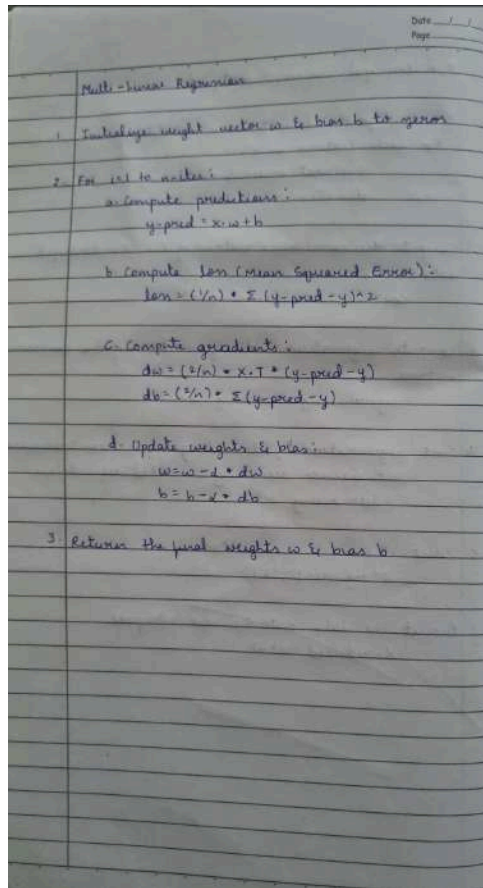 Date / /
Page
Multi-Linear Regression
1. Initialize weight vector w & bias b to zeros
2. For i=1 to n-iter:
a. Compute predictions:
y-pred = x.w+b
b. Compute loss (Mean Squared Error):
loss = (1/n) * Σ (y-pred - y)^2
c. Compute gradients:
dw = (2/n) * X.T * (y-pred - y)
db = (2/n) * Σ(y-pred - y)
d. Update weights & bias:
w = w - α * dw
b = b - α * db
3. Return the final weights w & bias b